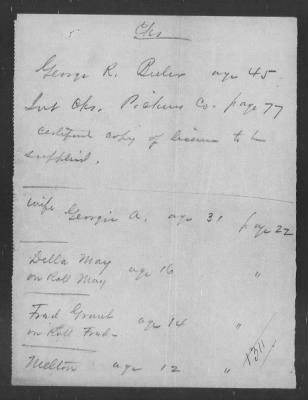 Cks
George R. age 45
Int Cks. Pickens Co. page 77
Certified copy of license to be
supplied.
Wife Georgia A. age 31 page 22
Della May age 16 "
on Roll May
Fred Grant age 14 "
on Roll Fred
Melton age 12 "
1311